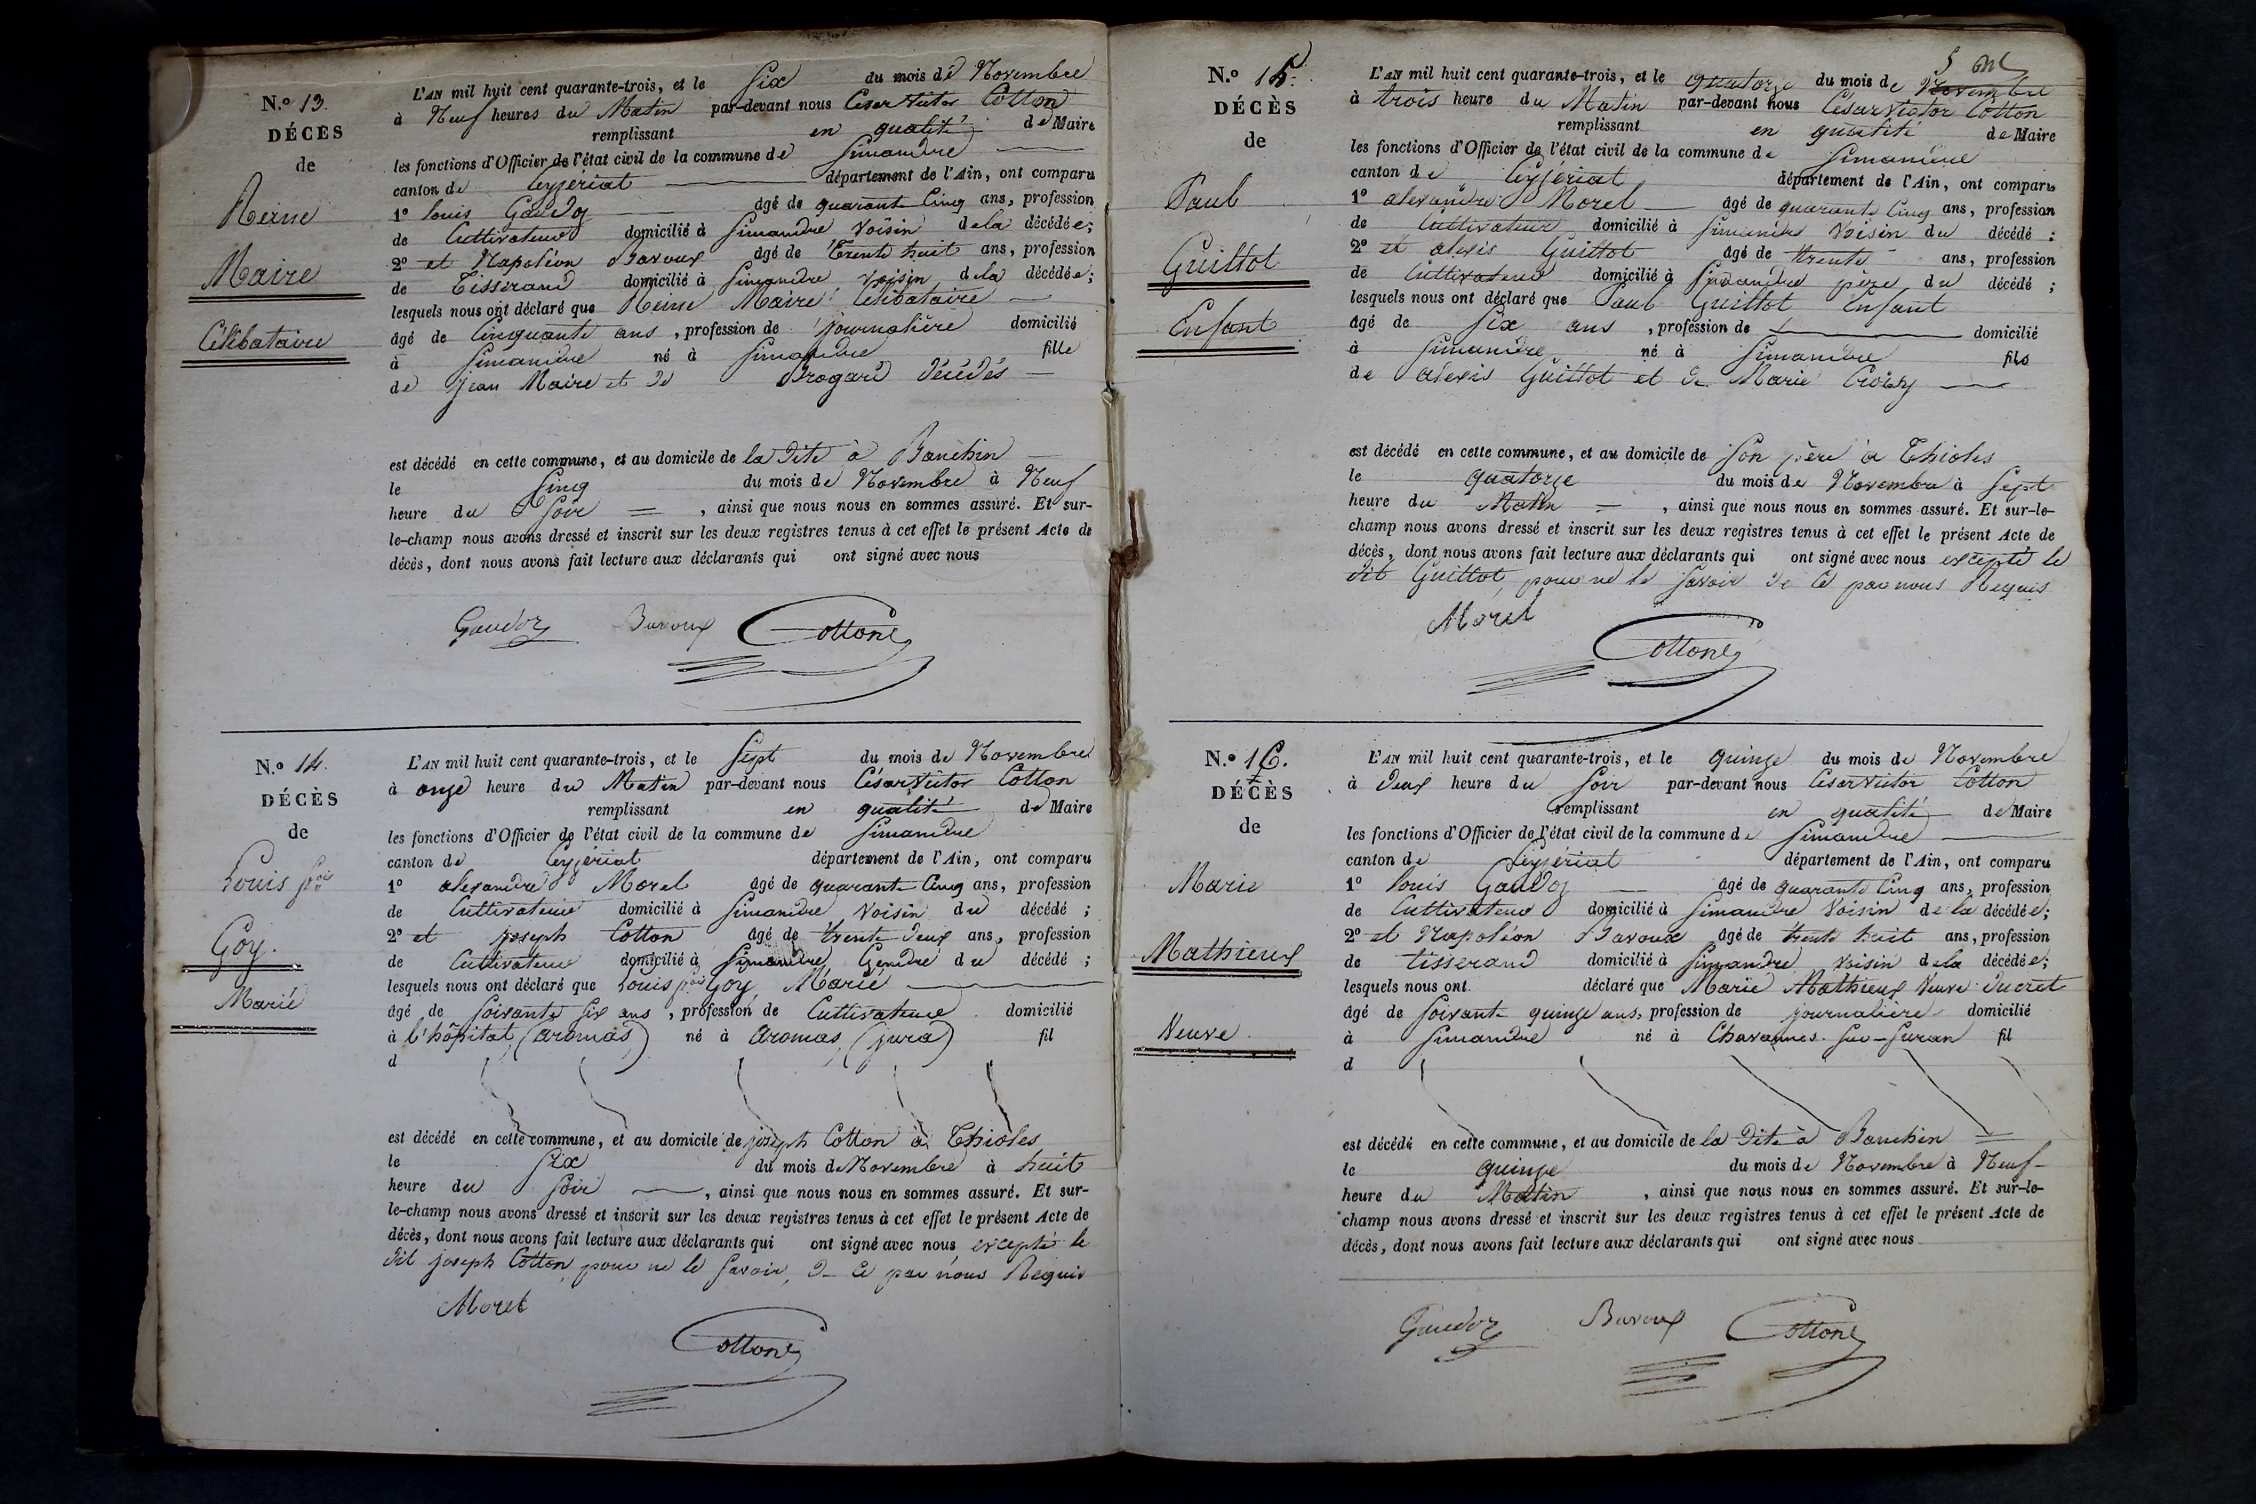 N.o 13.
DÉCÈS
de
Reine
Maire
Célibataire
L'AN mil huit cent quarante-trois, et le Six du mois de Novembre
à Neuf heures du Matin par-devant nous César Victor Cotton
remplissant en qualité de Maire
les fonctions d'Officier de l'état civil de la commune de Simandre
canton de Ceyzériat département de l'Ain, ont comparu
1o louis Gaudoz âgé de quarant Cinq ans, profession
de Cultivateur domicilié à Simandre voisin de la décédée;
2o et Napoléon Bavoux âgé de Trente huit ans, profession
de Tisserand domicilié à Simandre voisin de la décédée;
lesquels nous ont déclaré que Reine Maire Célibataire
âgé de Cinquante ans, profession de journalière domicilié
à Simandre né à Simandre fille
de Jean Maire et de Brogard décédés
est décédé en cette commune, et au domicile de la dite à Banchin
le Cinq du mois de Novembre à Neuf
heure du Soir, ainsi que nous nous en sommes assuré. Et sur-
le-champ nous avons dressé et inscrit sur les deux registres tenus à cet effet le présent Acte de
décès, dont nous avons fait lecture aux déclarants qui ont signé avec nous
Gaudoz Bavoux Cotton
N.o 14.
DÉCÈS
de
Louis
Goy.
Marié
L'AN mil huit cent quarante-trois, et le Sept du mois de Novembre
à onze heure du Matin par-devant nous César Victor Cotton
remplissant en qualité de Maire
les fonctions d'Officier de l'état civil de la commune de Simandre
canton de Ceyzériat département de l'Ain, ont comparu
1o alexandre Morel âgé de quarante Cinq ans, profession
de Cultivateur domicilié à Simandre voisin du décédé;
2o et joseph Cotton âgé de trente deux ans, profession
de Cultivateur domicilié à Simandre Gendre du décédé;
lesquels nous ont déclaré que Louis Goy Marié
âgé de Soixante six ans, profession de Cultivateur domicilié
à l'hôpital, (aromas) né à aromas, (jura) fil
d
est décédé en cette commune, et au domicile de joseph Cotton à Thioles
le Six du mois de Novembre à huit
heure du Soir, ainsi que nous nous en sommes assuré. Et sur-
le-champ nous avons dressé et inscrit sur les deux registres tenus à cet effet le présent Acte de
décès, dont nous avons fait lecture aux déclarants qui ont signé avec nous excepté le
dit joseph Cotton, pour ne le savoir, de ce par nous Requis
Morel
Cotton
N.o 15.
DÉCÈS
de
Paul
Guillot
Enfant
L'AN mil huit cent quarante-trois, et le quatorze du mois de Novembre
à trois heure du Matin par-devant nous César Victor Cotton
remplissant en qualité de Maire
les fonctions d'Officier de l'état civil de la commune de Simandre
canton de Ceyzériat département de l'Ain, ont comparu
1o alexandre Morel âgé de quarante Cinq ans, profession
de Cultivateur domicilié à Simandre voisin du décédé;
2o et alexis Guillot âgé de trente ans, profession
de Cultivateur domicilié à Simandre père du décédé;
lesquels nous ont déclaré que Paul Guillot Enfant
âgé de Six ans, profession de domicilié
à Simandre né à Simandre fils
de alexis Guillot et de Marie
est décédé en cette commune, et au domicile de son père à Thioles
le quatorze du mois de Novembre à Sept
heure du Matin, ainsi que nous nous en sommes assuré. Et sur-le-
champ nous avons dressé et inscrit sur les deux registres tenus à cet effet le présent Acte de
décès, dont nous avons fait lecture aux déclarants qui ont signé avec nous excepté le
dit Guillot, pour ne le savoir de ce par nous Requis
Morel
Cotton
N.o 16.
DÉCÈS
de
Marie
Mathieux
Veuve.
L'AN mil huit cent quarante-trois, et le quinze du mois de Novembre
à Deux heure du Soir par-devant nous César Victor Cotton
remplissant en qualité de Maire
les fonctions d'Officier de l'état civil de la commune de Simandre
canton de Ceyzériat département de l'Ain, ont comparu
1o louis Gaudoz âgé de quarante Cinq ans, profession
de Cultivateur domicilié à Simandre voisin de la décédée;
2o et Napoléon Bavoux âgé de trente huit ans, profession
de tisserand domicilié à Simandre voisin de la décédée;
lesquels nous ont déclaré que Marie Mathieux Veuve Sucret
âgé de soixante quinze ans, profession de journalière domicilié
à Simandre né à Chavannes-Sur-Suran fil
d
est décédé en cette commune, et au domicile de la dite à Banchin
le quinze du mois de Novembre à Neuf
heure du Matin, ainsi que nous nous en sommes assuré. Et sur-le-
champ nous avons dressé et inscrit sur les deux registres tenus à cet effet le présent Acte de
décès, dont nous avons fait lecture aux déclarants qui ont signé avec nous
Gaudoz Bavoux Cotton